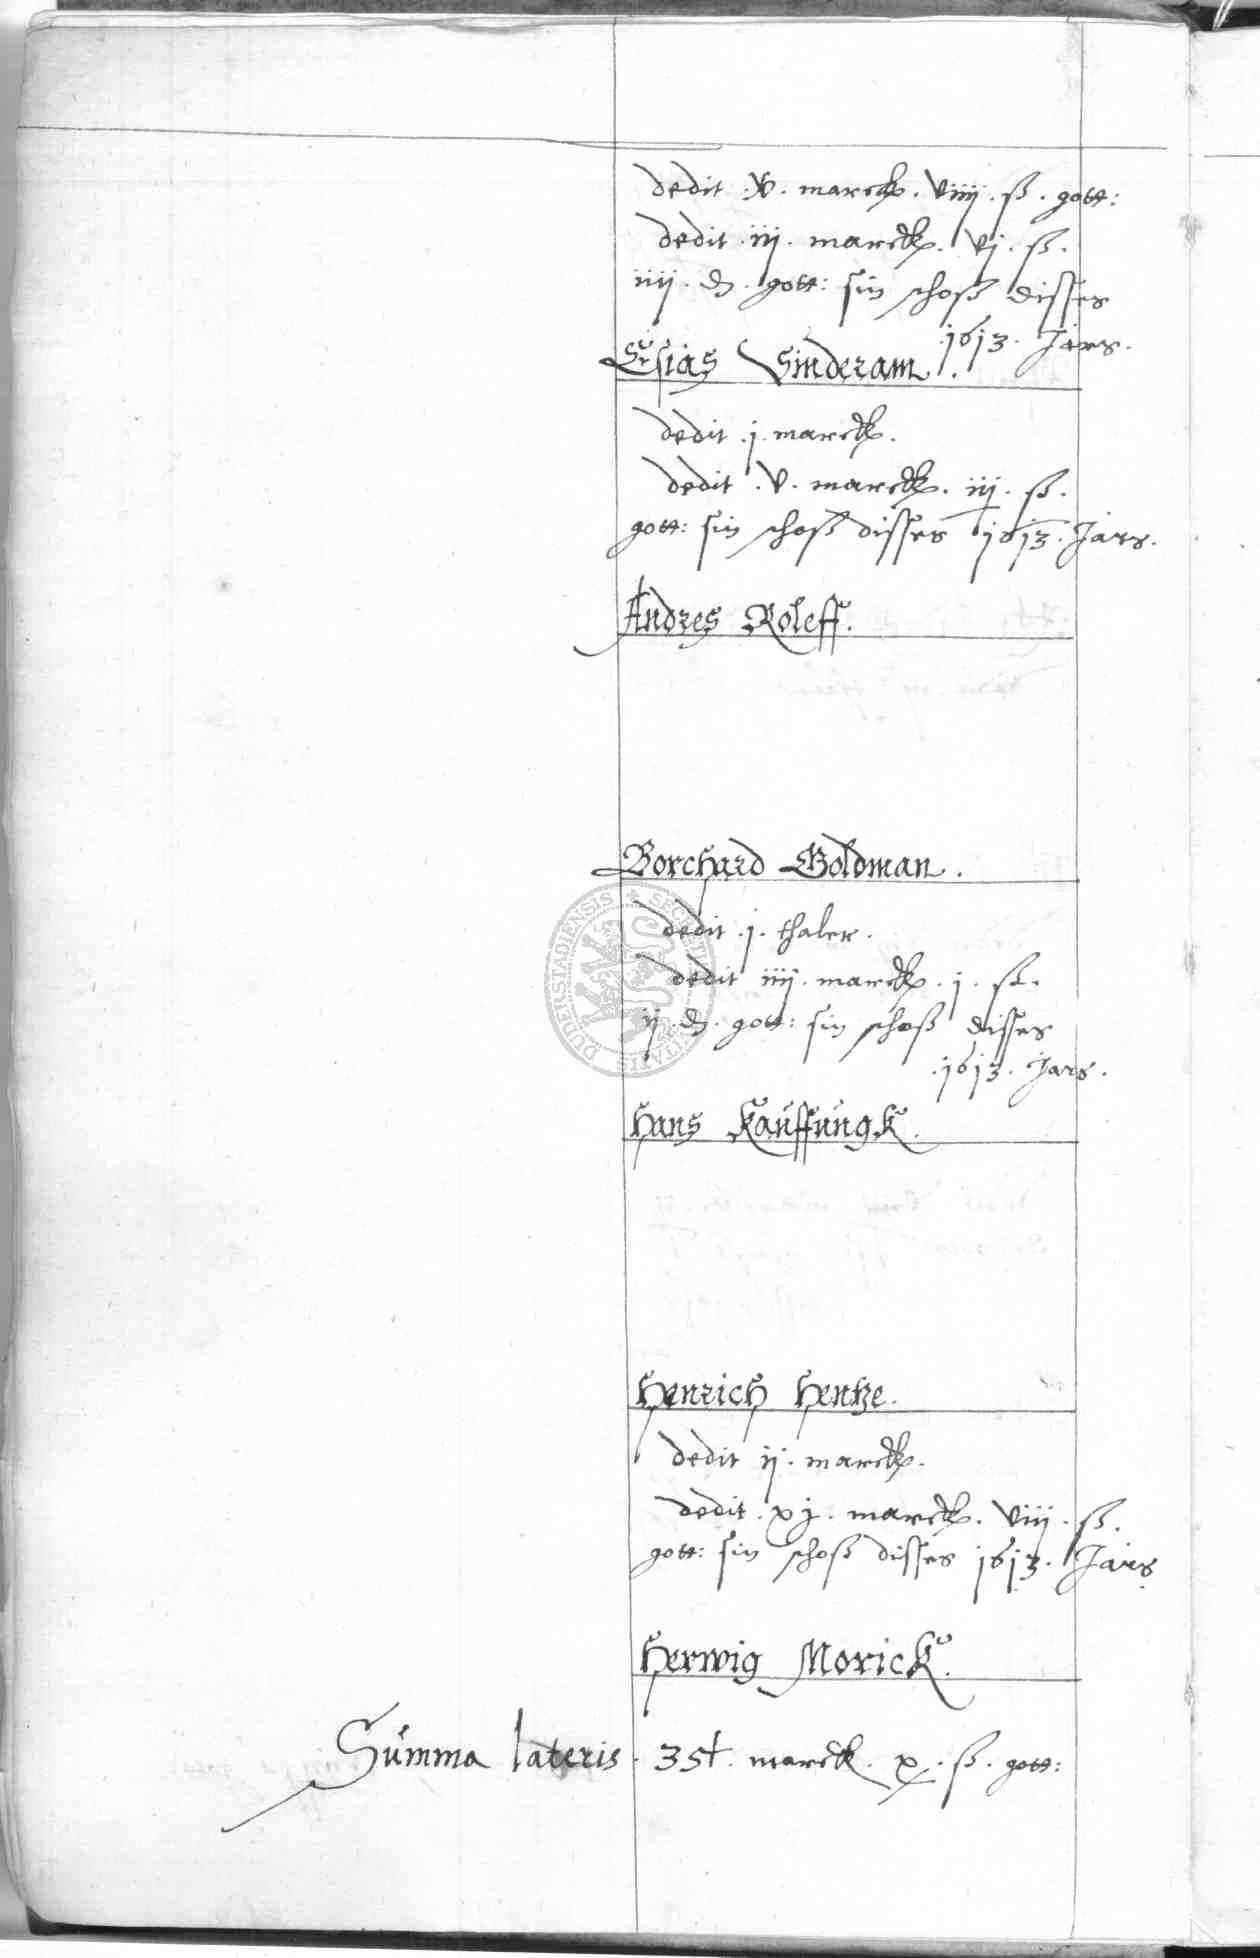 dedit .v. marck. viiij. ß. gott:
dedit .iij. marck. vj. ß.
iiij. ₰. gott: sin schoß disses
.1613. Jars.
Esias Sinderam.
dedit .j. marck.
dedit .v. marck. iij. ß.
gott: sin schoß disses 1613. Jars.
Andres Roleff.
Borchard Goldman.
dedit .j. thaler.
dedit iiij. marck. j. ß.
ij. ₰. gott: sin schoß disses
.1613. Jars.
Hans Kauffungk.
Henrich Hentze.
dedit ij. marck.
dedit .xj. marck. viij. ß.
gott: sin schoß disses 1613. Jars
Herwig Morick.
Summa lateris. marck. x. ß. gott:
SECRETI CIVITATIS DUDERSTADIENSIS